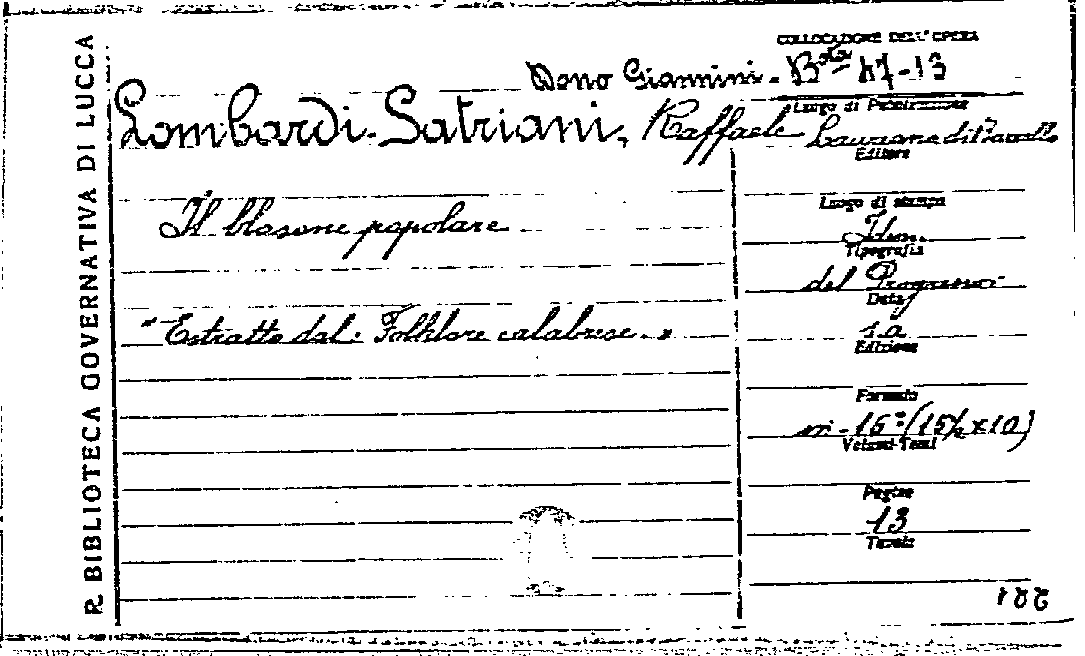 R. BIBLIOTECA GOVERNATIVA DI LUCCA
COLLOCAZIONE DELL'OPERA
Dono Giannini - B.ta 47-13
Lombardi-Satriani, Raffaele
Il blasone popolare
"Estratto dal: Folklore calabrese."
Luogo di Pubblicazione
Editore
Luogo di stampa
Idem.
Tipografia
del Progresso
Data
s.a
Edizione
Formato
in-16° (15½ x 10)
Volumi-Tomi
Pagine
13
Tavole